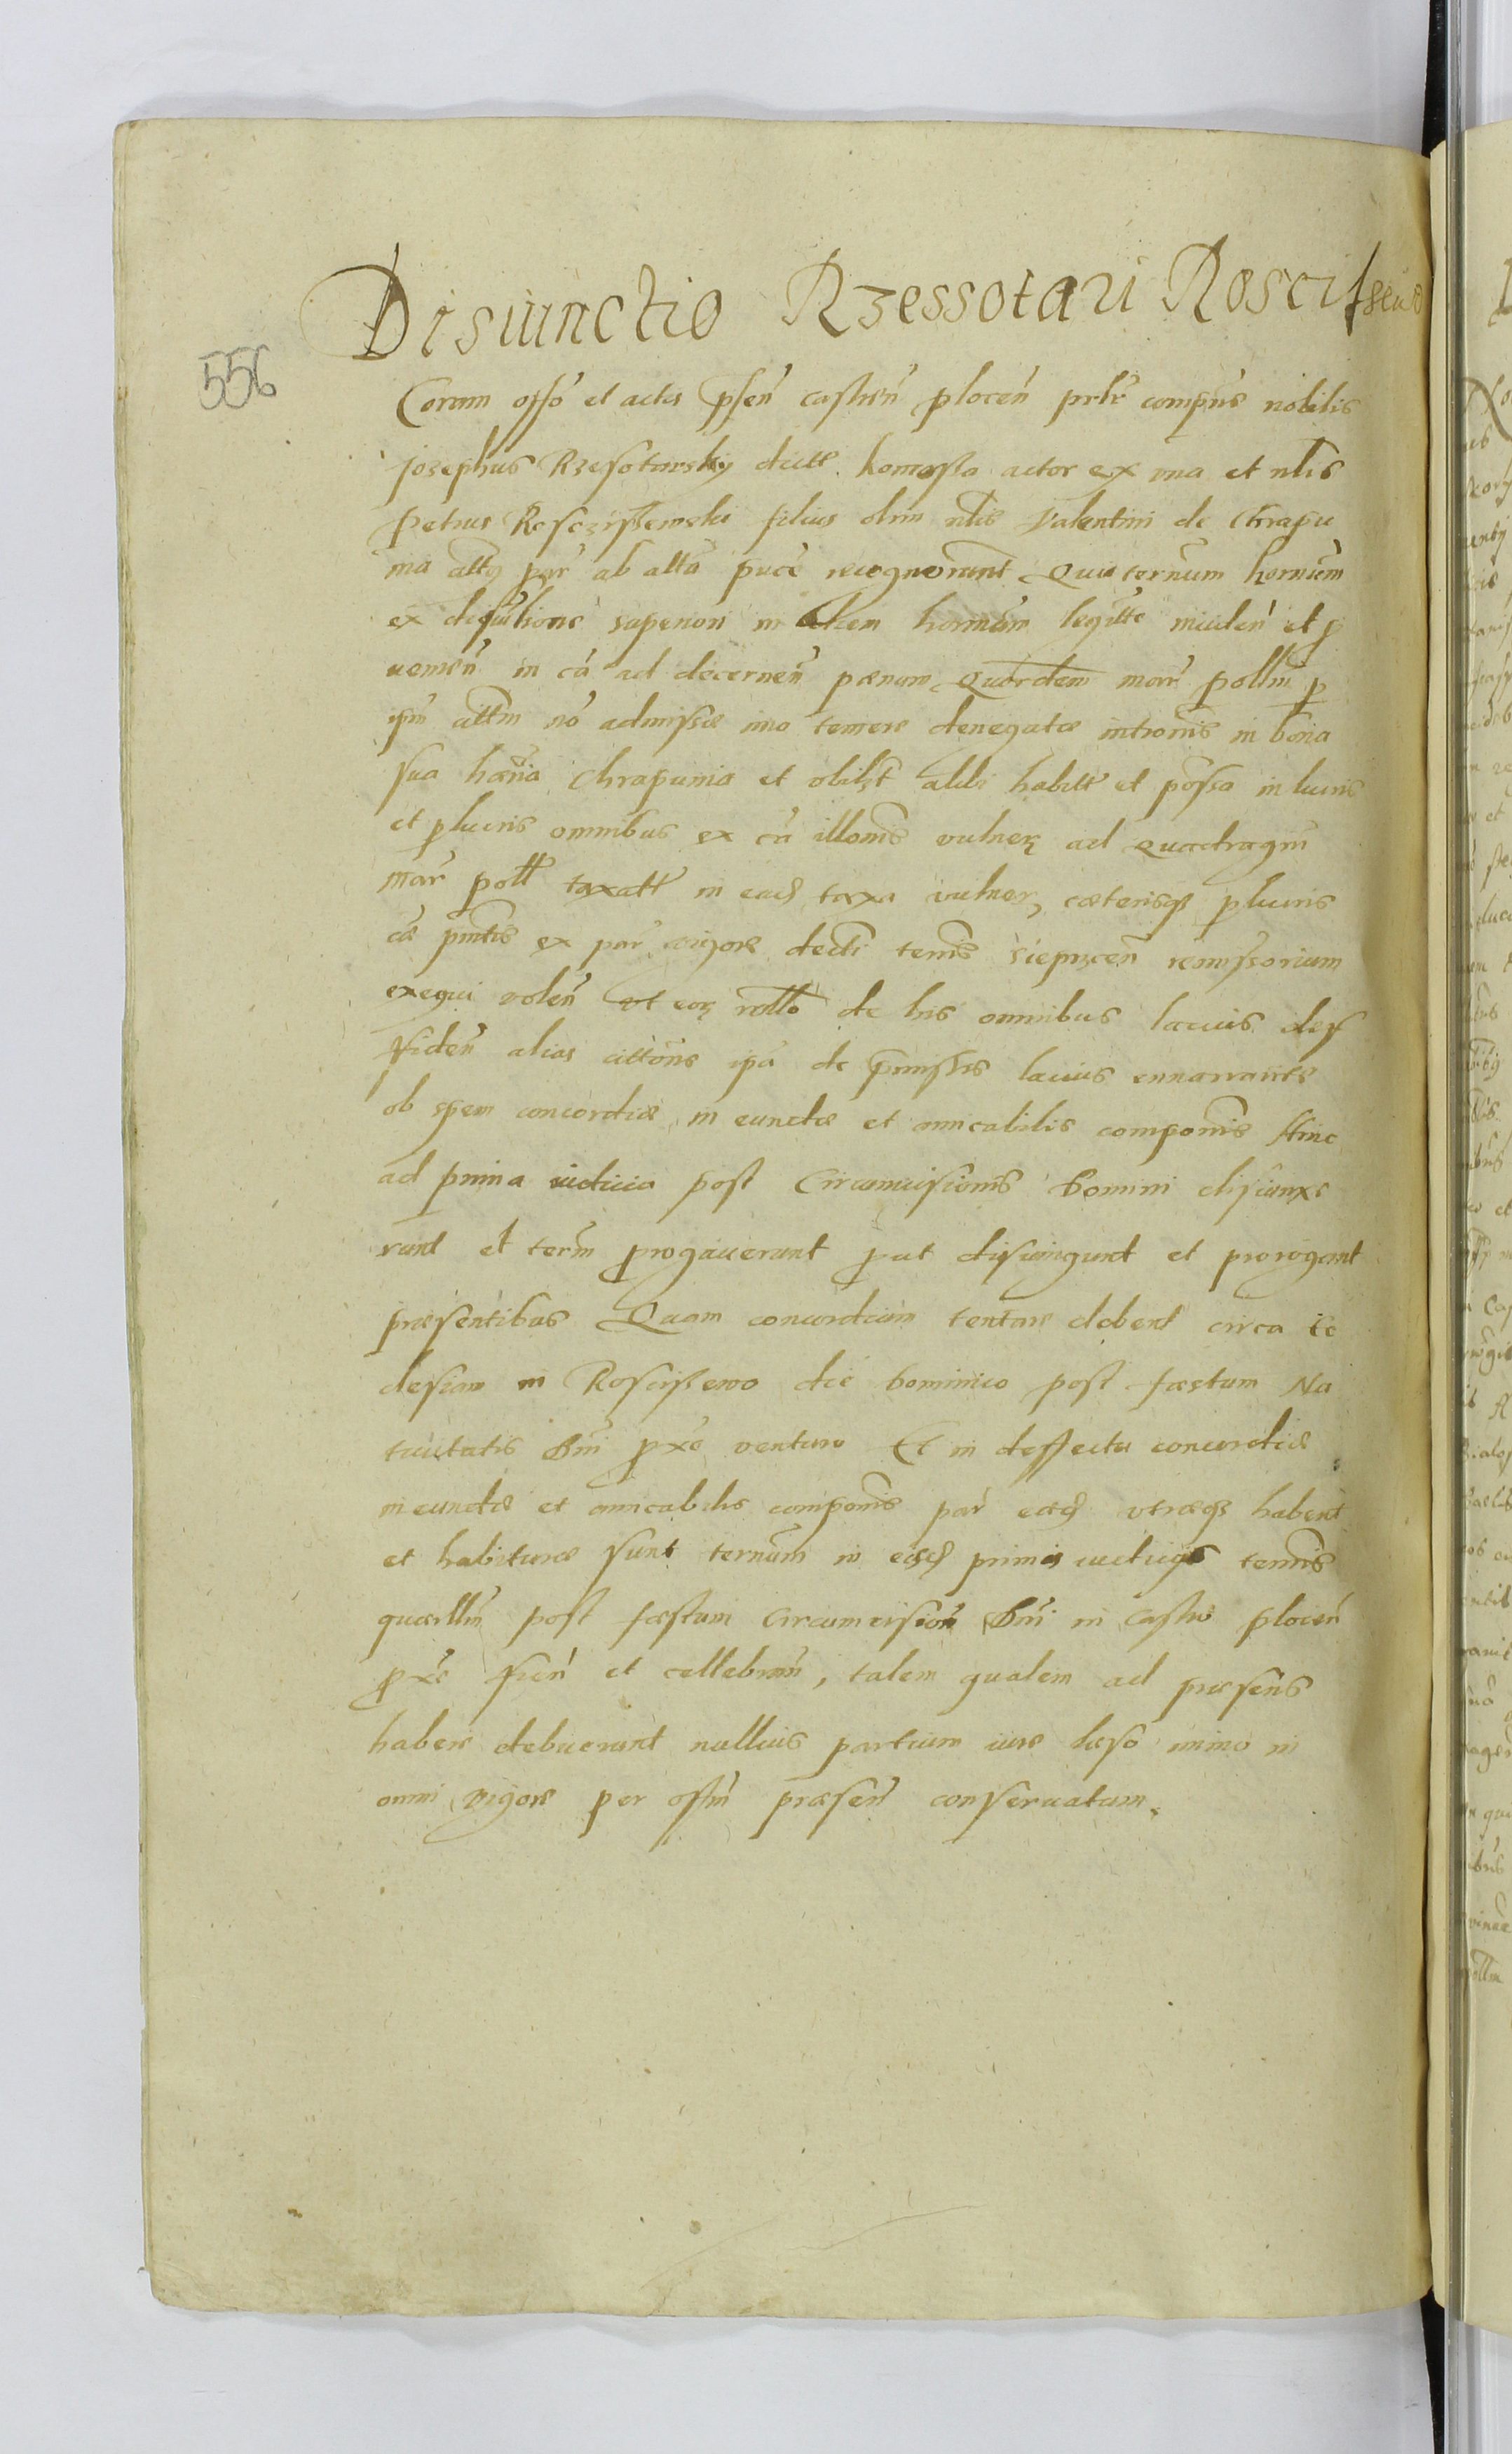 Disiunctio Rzessotari Roscisseus
556
Coram offo et actis psen castren plocen prlr compns nobilis
Jozephus Rzesotarsky dictt homosta actor ex vna et nlis
Petrus Rosczissewski filius olim nlis Valentini de Chrapu
nia par ab recognoverunt Quia ternum hornum
ex superiori in hornum legitte inciden et p
uenien in ca ad decernen pœnam Quordem mar pollm p
ipm no admissæ imo temere denegatæ intromis in bona
sua hæria Chrapunia et obilst alibi habitt et possa in lucris
et plucris omnibus ex ca illonis vulner ad quadragin
mar poll taxatt in eadz taxa vulner, cæterisqz plucris
cæ pmtis ex par vigore decti termis sieprcen remissorium
exequi volen vt eor rollo de his omnibus lacius des
siden alias cittone ipa de pmissis lacius ennarrante
ob spem concordiæ in eunctæ et amicabilis componis hinc
ad prima iudicia post Circumcisionis Domini disiunxe
runt et term progauerunt put disiungunt et prorogant
præsentibus Quam concordiam tentare debent circa Ec
clesiam in Roscissewo die Dominico post fæstum Na
tiuitatis Dni pxe venturo Et in deffectu concordiæ
in eunctæ et amicabilis componis par eædz vtræqz habent
et habituræ sunt ternum in eisdz primis iudicijs termis
quærllm post fæstum Circumcision Dni in Castro plocen
pxe fien et cellebran, talem qualem ad præsens
habere debuerunt nullius partium iure læso immo in
omni vigore per offm præsen conseruatum.